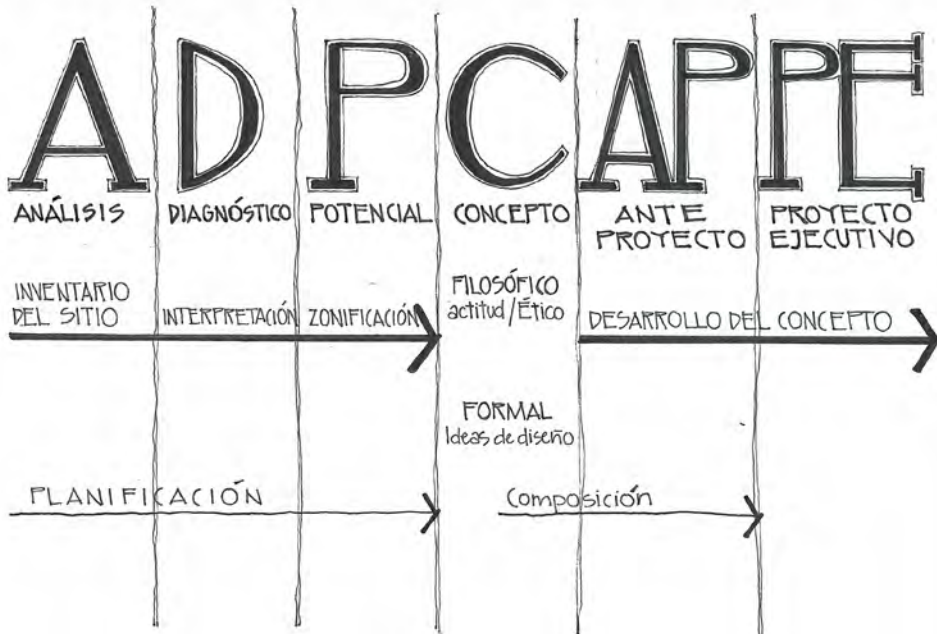 A D P C AP PE
ANÁLISIS
DIAGNÓSTICO
POTENCIAL
CONCEPTO
ANTE
PROYECTO
PROYECTO
EJECUTIVO
INVENTARIO
DEL SITIO
INTERPRETACIÓN
ZONIFICACIÓN
FILOSÓFICO
actitud/Ético
DESARROLLO DEL CONCEPTO
FORMAL
Ideas de diseño
PLANIFICACIÓN
Composición